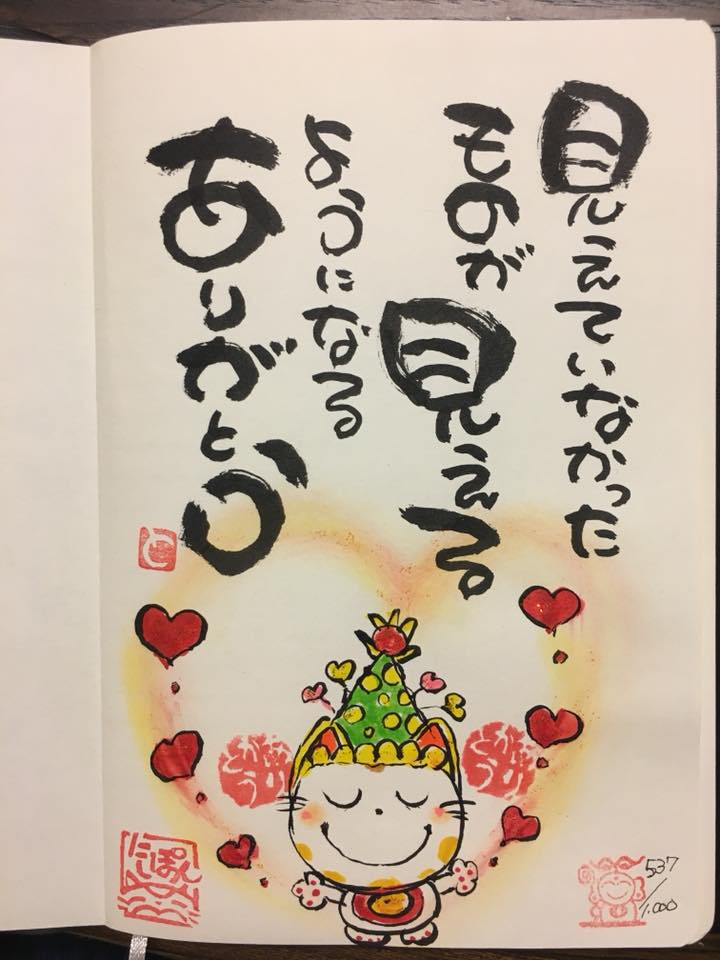 見えていなかった
ものが見える
ようになる
ありがとう
と
にっぽん
537/1.000